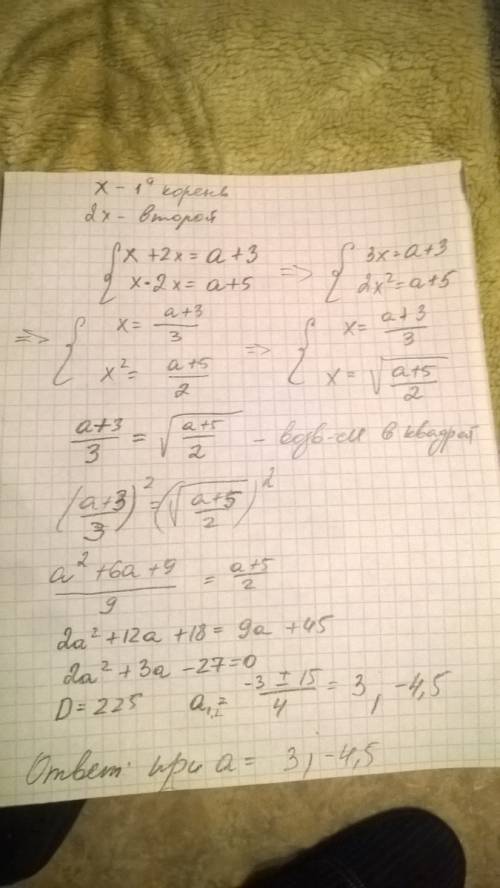 x - 1й корень
2x - второй
{ x + 2x = a + 3 => { 3x = a + 3
{ x · 2x = a + 5 { 2x² = a + 5
=> { x = (a+3)/3 => { x = (a+3)/3
{ x² = (a+5)/2 { x = √((a+5)/2)
(a+3)/3 = √((a+5)/2) - возв-м в квадрат
((a+3)/3)² = (√((a+5)/2))²
(a² + 6a + 9)/9 = (a+5)/2
2a² + 12a + 18 = 9a + 45
2a² + 3a - 27 = 0
D = 225 a₁,₂ = (-3 ± 15)/4 = 3, -4,5
Ответ: при a = 3; -4,5